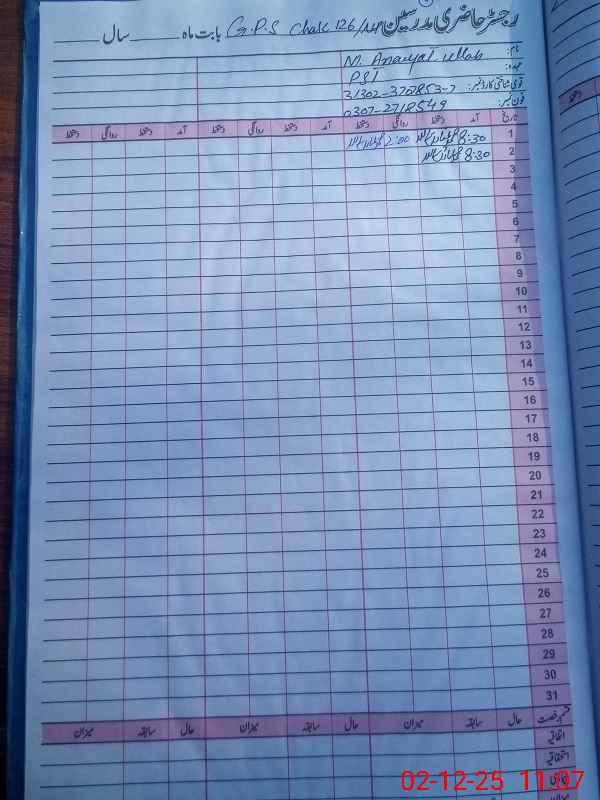 رجسٹر حاضری مدرسین G.P.S Chak 126/ بابت ماہ ____ سال ____
نام: M. Anayat ullah
عہدہ: PST
قومی شناختی کارڈ نمبر: 31302-3
فون نمبر: 0307-2718549
تاریخ آمد دستخط روانگی دستخط آمد دستخط روانگی دستخط آمد دستخط روانگی دستخط
1 8:30 2:00
2 8:30
3
4
5
6
7
8
9
10
11
12
13
14
15
16
17
18
19
20
21
22
23
24
25
26
27
28
29
30
31
قسم رخصت حال سابقہ میزان حال سابقہ میزان حال سابقہ میزان
اتفاقیہ
استحقاقیہ
میزان
02-12-25 11:07